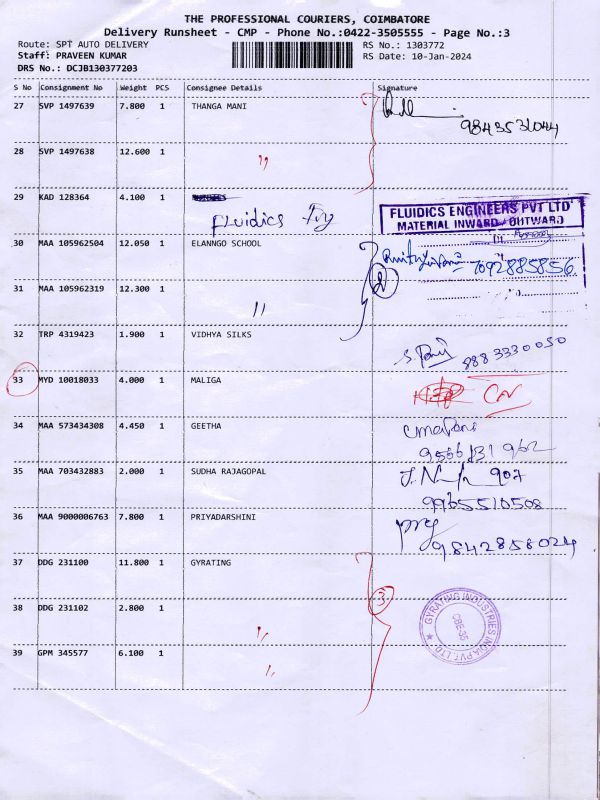 THE PROFESSIONAL COURIERS, COIMBATORE
Delivery Runsheet - CMP - Phone No.:0422-3505555 - Page No.:3
Route: SPT AUTO DELIVERY
RS No.: 1303772
Staff: PRAVEEN KUMAR
RS Date: 10-Jan-2024
DRS No.: DCJB130377203
S No Consignment No Weight PCS Consignee Details Signature
27 SVP 1497639 7.800 1 THANGA MANI
9843531044
28 SVP 1497638 12.600 1 "
29 KAD 128364 4.100 1
Fluidics
FLUIDICS ENGINEERS PVT LTD
MATERIAL INWARD / OUTWARD
30 MAA 105962504 12.050 1 ELANNGO SCHOOL
7092885856
2
31 MAA 105962319 12.300 1 "
32 TRP 4319423 1.900 1 VIDHYA SILKS
8883330050
33 MYD 10018033 4.000 1 MALIGA
34 MAA 573434308 4.450 1 GEETHA
9566131962
35 MAA 703432883 2.000 1 SUDHA RAJAGOPAL
907
9965510508
36 MAA 9000006763 7.800 1 PRIYADARSHINI
priy
9842858024
37 DDG 231100 11.800 1 GYRATING
3
38 DDG 231102 2.800 1 "
GYRATING INDUSTRIES INDIA PVT. LTD
CBE-35
39 GPM 345577 6.100 1 "